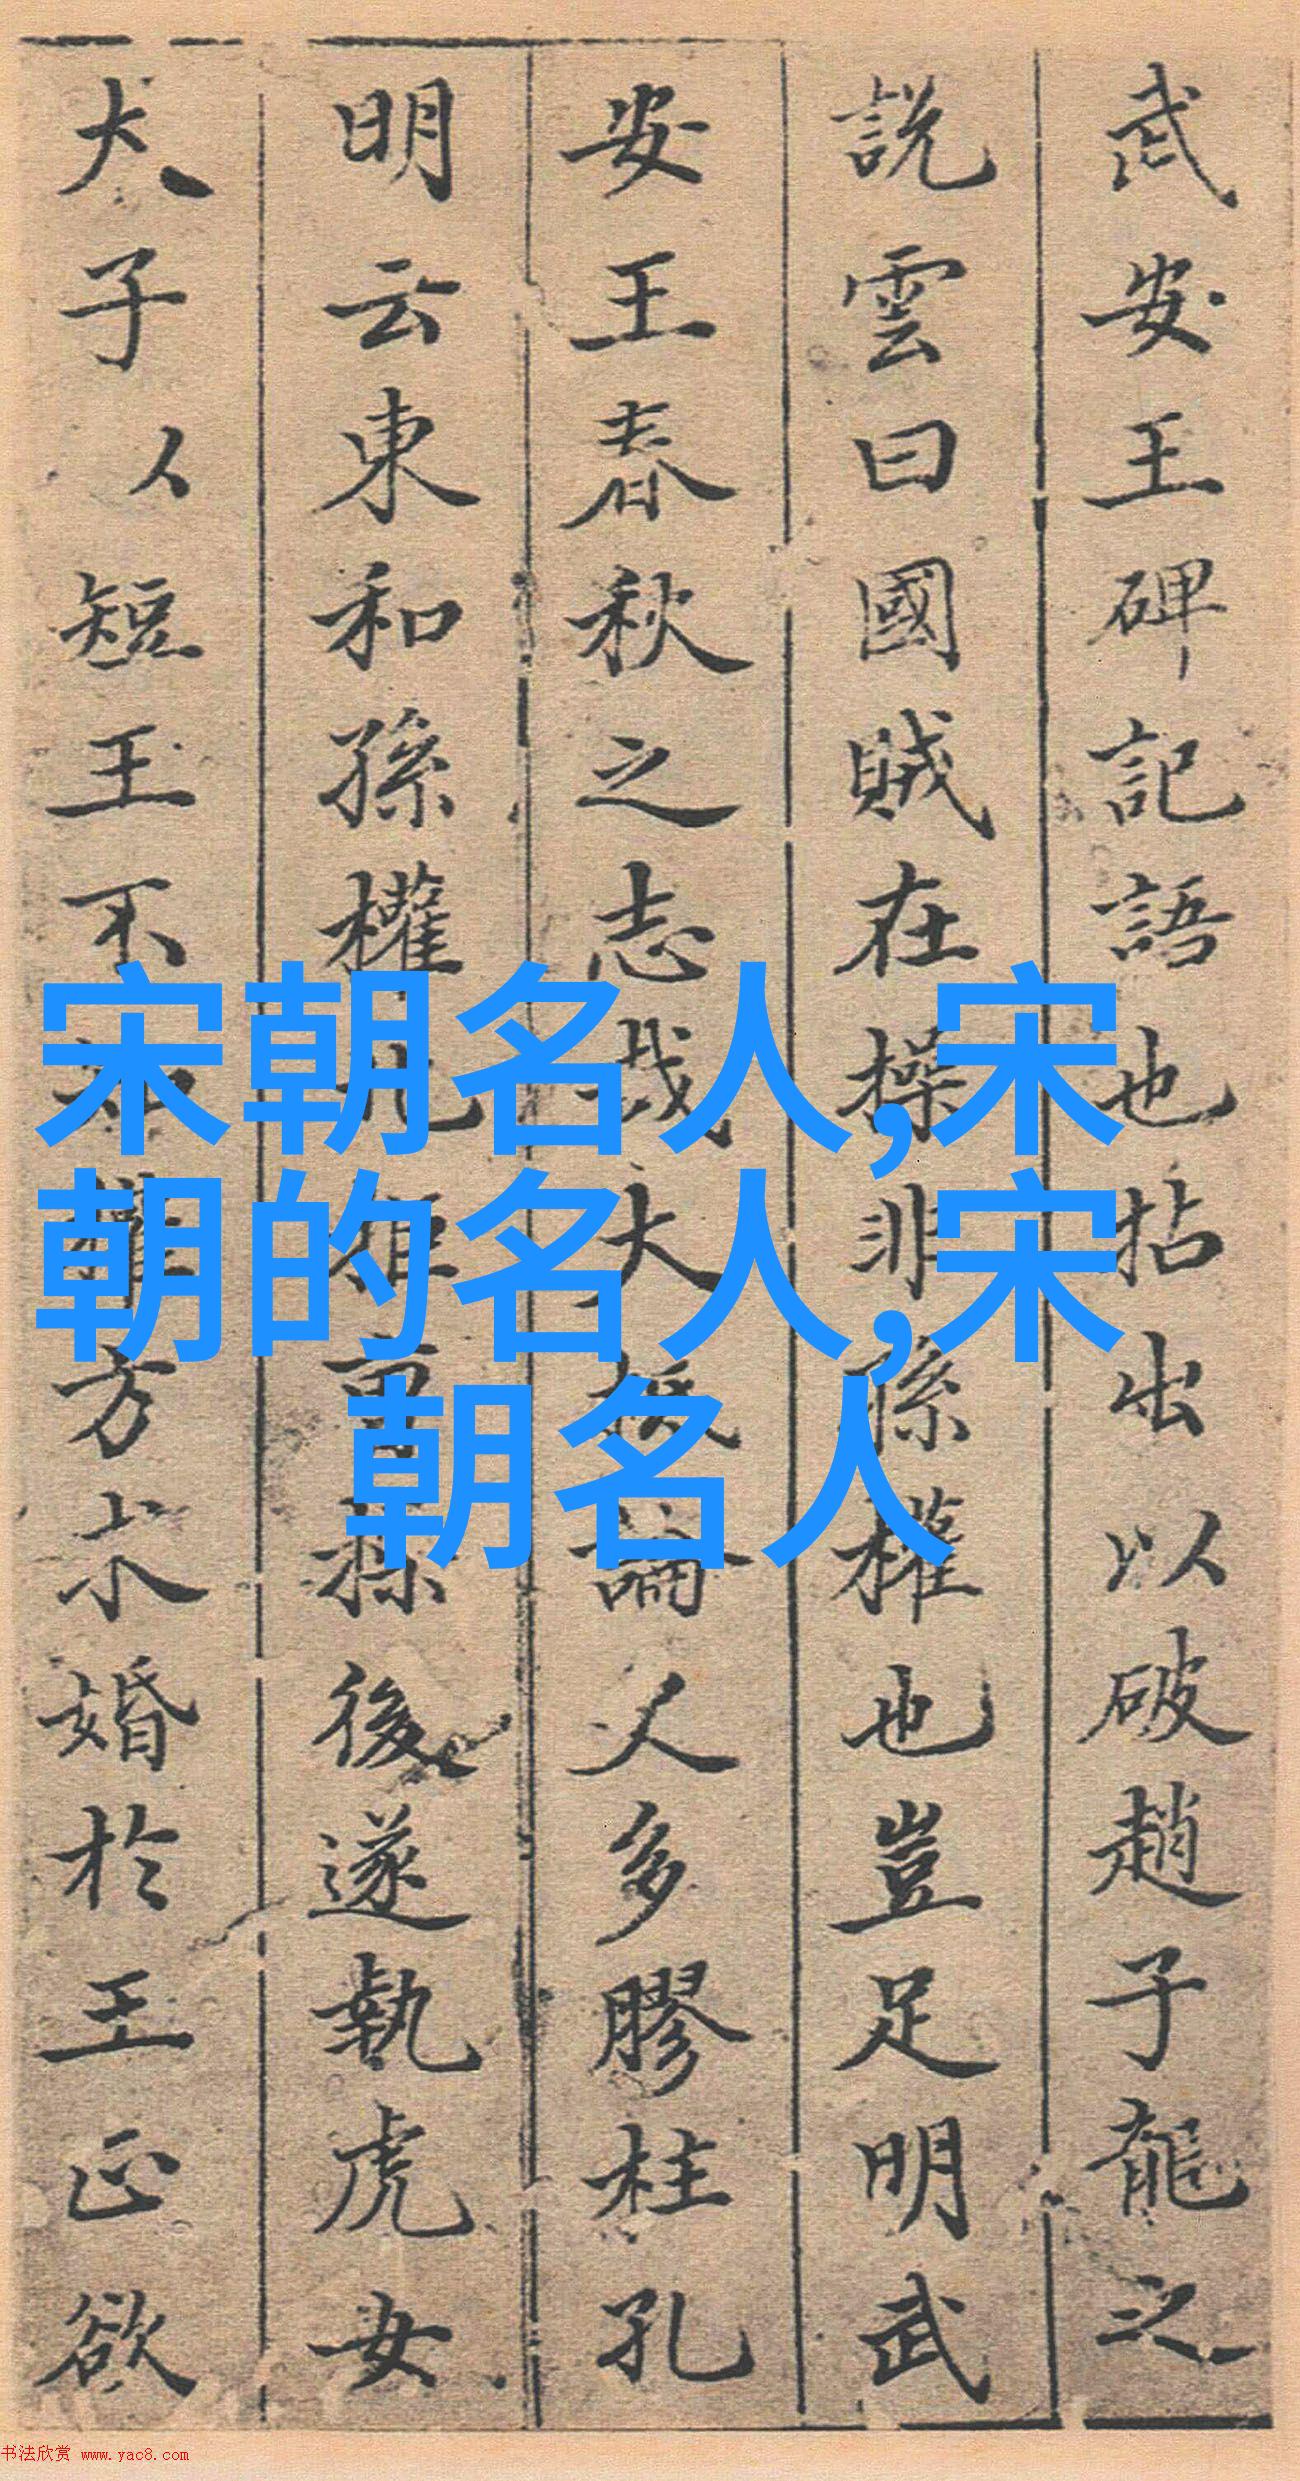 武安王碑記語也拈出以破趙子龍之
説雲曰國賊在操非孫權也豈足明武
安王春秋之志哉大抵論人多膠柱孔
明云東和孫權北拒曹操後遂執虎女
犬子以短王不知權方求婚於王正欲
宋朝名人,宋
朝的名人,宋
朝名人
书法欣赏 www.yac8.com